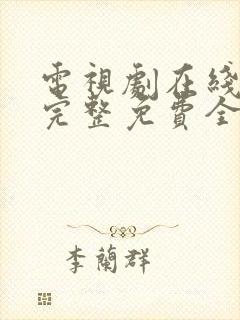 電視劇在綫
完整免費全
李蘭群